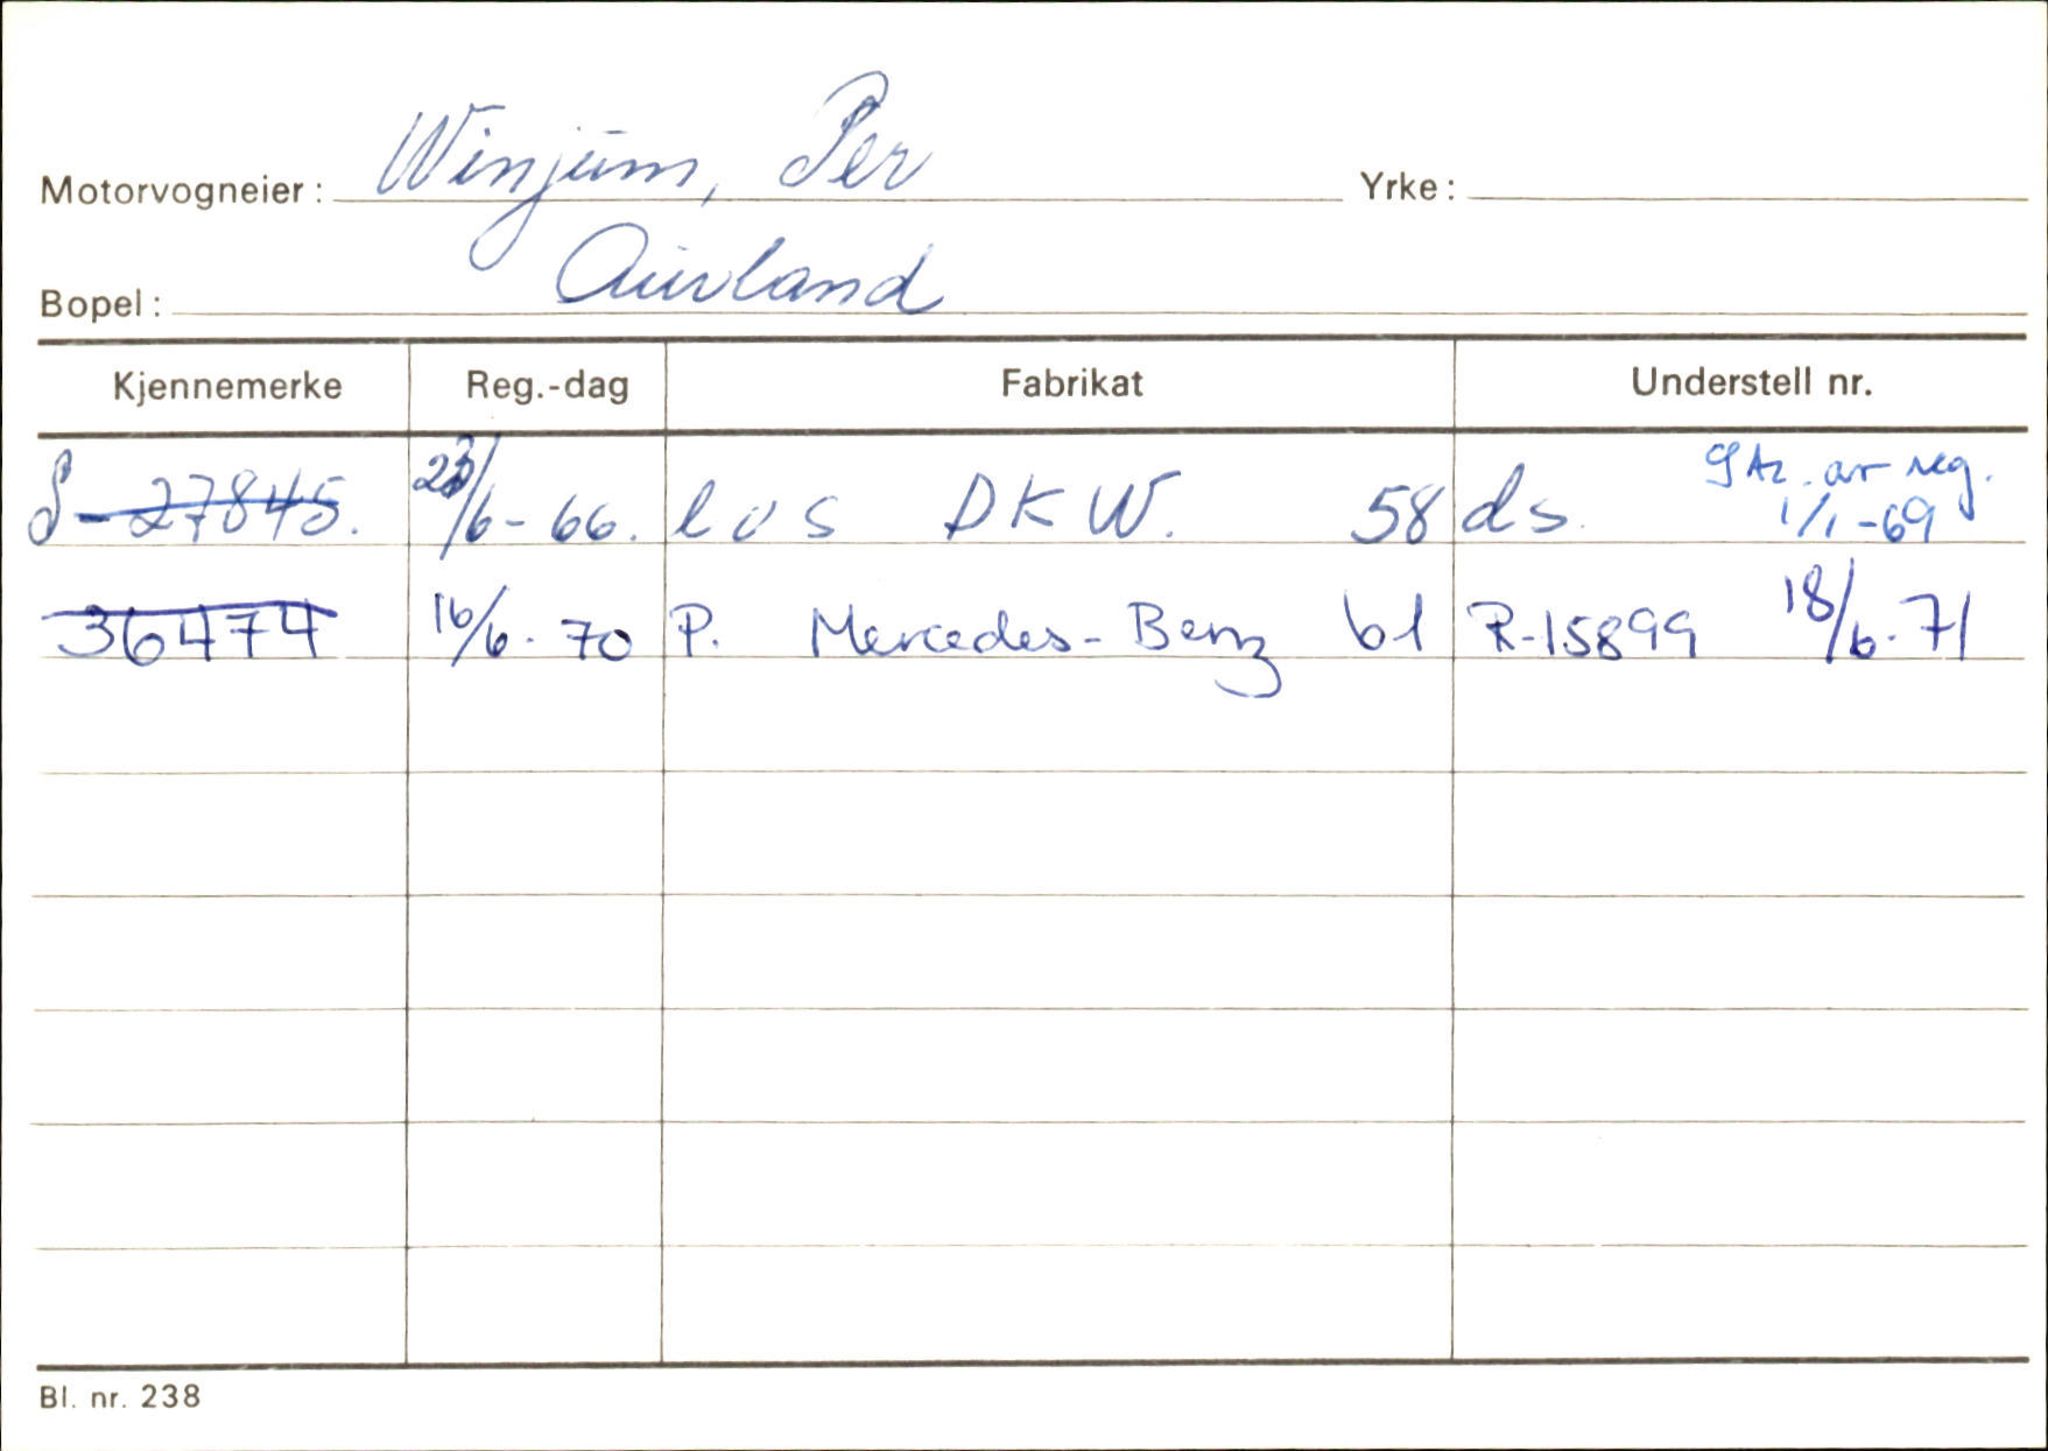 Motorvogneier: Winjum, Per Yrke:
Bopel: Aurland
Kjennemerke Reg.-dag Fabrikat Understell nr.
S-27845. 23/6-66. l v s DKW. 58 ds. av reg. 1/1-69
36474 16/6-70 P. Mercedes-Benz 61 R-15899 18/6-71
Bl. nr. 238